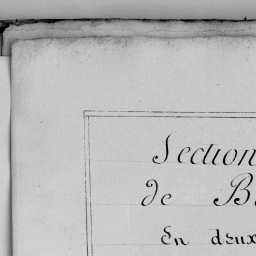 Section
de B
En deux